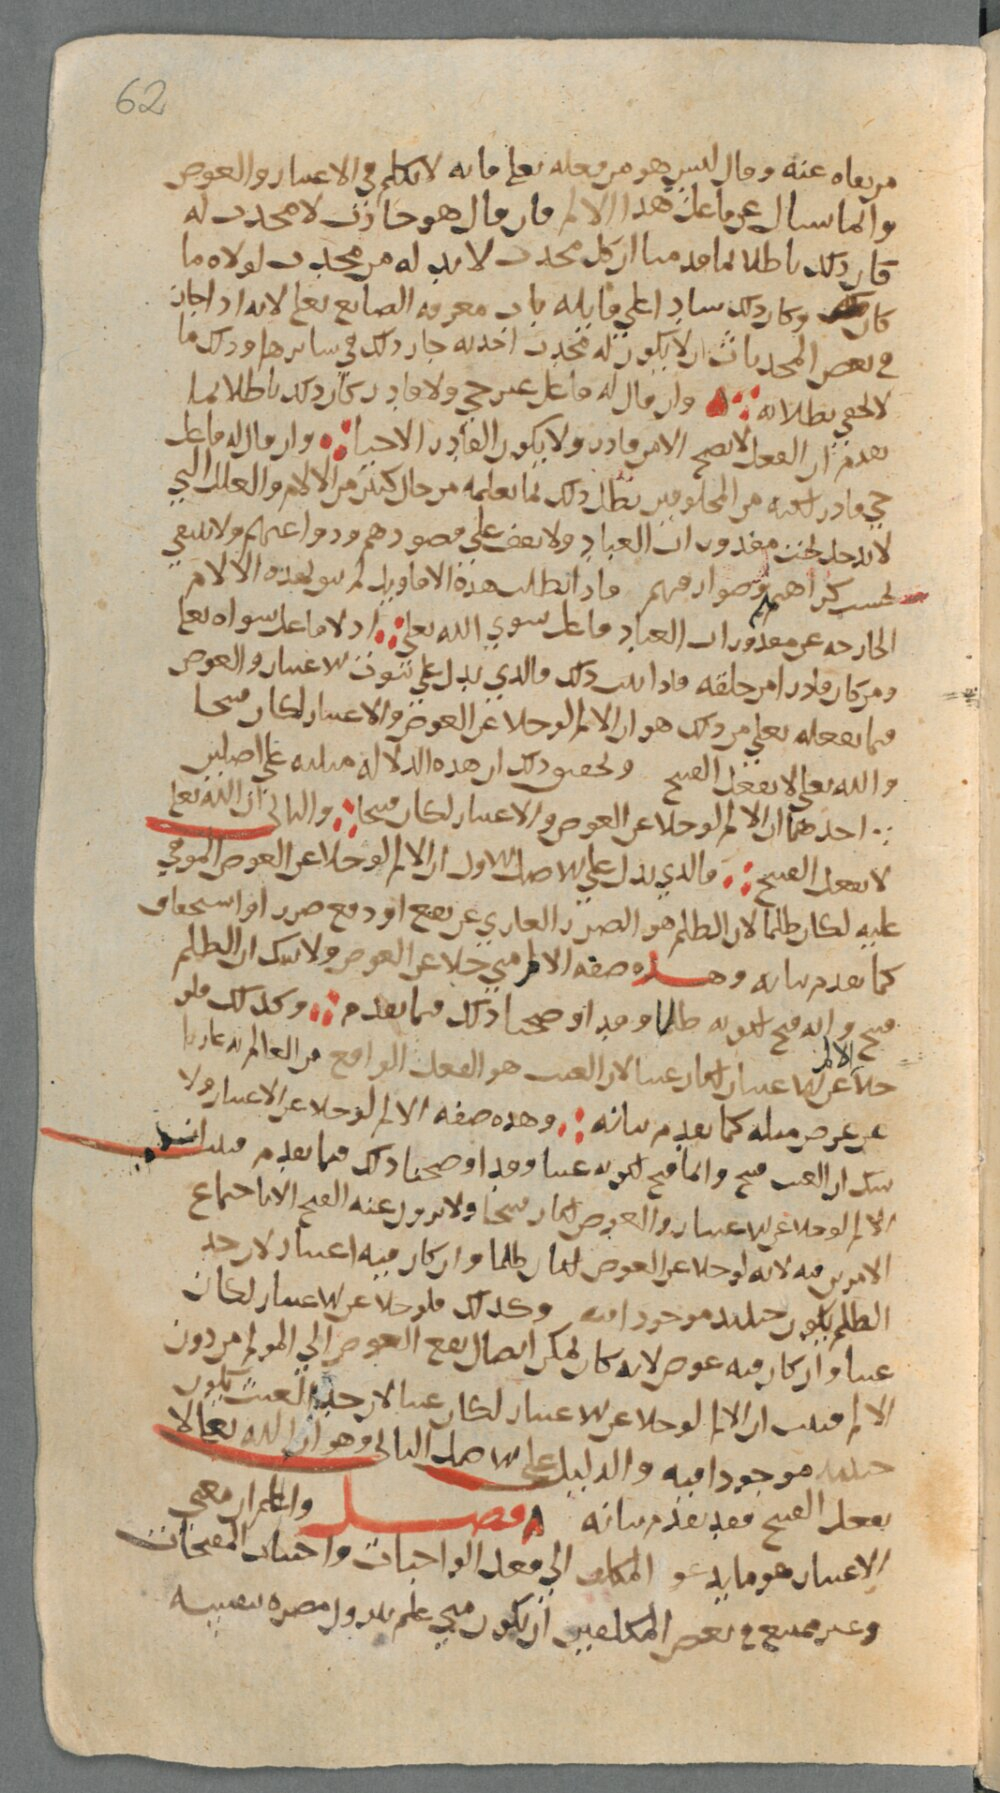 62
من نفاه عنه وقال ليس هو من فعله تعالى فانه لا يتكلم في الاعتبار والعوض
وانما يسال عن فاعل هذا الالم فان قال هو حادث لا محدث له
كان ذلك باطلا لما قدمنا ان كل محدث لا بد له من محدث لولاه ما
كان وكان ذلك سادا على قايله باب معرفة الصانع تعالى لانه اذا جاز
في بعض المحدثات ان لا يكون له محدث احدثه جاز ذلك في سايرها وذلك ما
لا يخفى بطلانه وان قال له فاعل غير حي ولا قادر كان ذلك باطلا لما
تقدم ان الفعل لا يصح الا من قادر ولا يكون القادر الا حيا وان قال له فاعل
حي قادر لعله من المخلوقين بطل ذلك لما نعلمه من حال كثير من الالام والعلل التي
لا تدخل تحت مقدورات العباد ولا تقف على قصودهم ودواعيهم ولا تنتفي
بحسب كراهتهم وصوارفهم فاذا بطلت هذه الاقاويل لم يبق لهذه الالام
الخارجه عن مقدورات العباد فاعل سوى الله تعالى اذ لا فاعل سواه تعالى
ومن كان قادرا من خلقه فاذا ثبت ذلك فالذي يدل على ثبوت الاعتبار والعوض
فيما يفعله تعالى من ذلك هو ان الالم لو خلا عن العوض والاعتبار لكان قبيحا
والله تعالى لا يفعل القبيح وتحقيق ذلك ان هذه الدلاله مبنيه على اصلين
احدهما ان الالم لو خلا عن العوض والاعتبار لكان قبيحا والثاني ان الله تعالى
لا يفعل القبيح فالذي يدل على الاصل الاول ان الالم لو خلا عن العوض الموفي
عليه لكان ظلما لان الظلم هو الضرر العاري عن نفع او دفع ضرر او استحقاق
كما تقدم بيانه وهذه صفه الالم متى خلا عن العوض ولا شك ان الظلم
قبيح وانه قبح لكونه ظلما وقد اوضحنا ذلك فيما تقدم وكذلك فلو
خلا الالم عن الاعتبار لكان عبثا لان العبث هو الفعل الواقع من العالم به عاريا
عن غرض مثله كما تقدم بيانه وهذه صفه الالم لو خلا عن الاعتبار ولا
شك ان العبث قبيح وانما قبح لكونه عبثا وقد اوضحنا ذلك فيما تقدم فثبت ان
الالم لو خلا عن الاعتبار والعوض لكان قبيحا ولا يزول عنه القبح الا باجتماع
الامرين فيه لانه لو خلا عن العوض لكان ظلما وان كان فيه اعتبار لان حد
الظلم يكون حينئذ موجودا فيه وكذلك فلو خلا عن الاعتبار لكان
عبثا وان كان فيه عوض لانه كان يمكن ايصال نفع العوض الى المولم من دون
الالم فثبت ان الالم لو خلا عن الاعتبار لكان عبثا لان حد العبث يكون
حينئذ موجودا فيه والدليل على الاصل الثاني وهو ان الله تعالى لا
يفعل القبيح فقد تقدم بيانه فصل واعلم ان معنى
الاعتبار هو ما يدعو المكلف الى فعل الواجبات واجتناب المقبحات
وغير ممتنع في بعض المكلفين ان يكون متى علم نزول مضره بنفسه